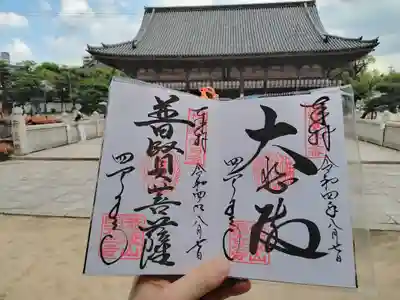 奉拝
大悲殿
四天王寺
令和四年八月七日
奉拝
普賢菩薩
四天王寺
令和四年八月七日